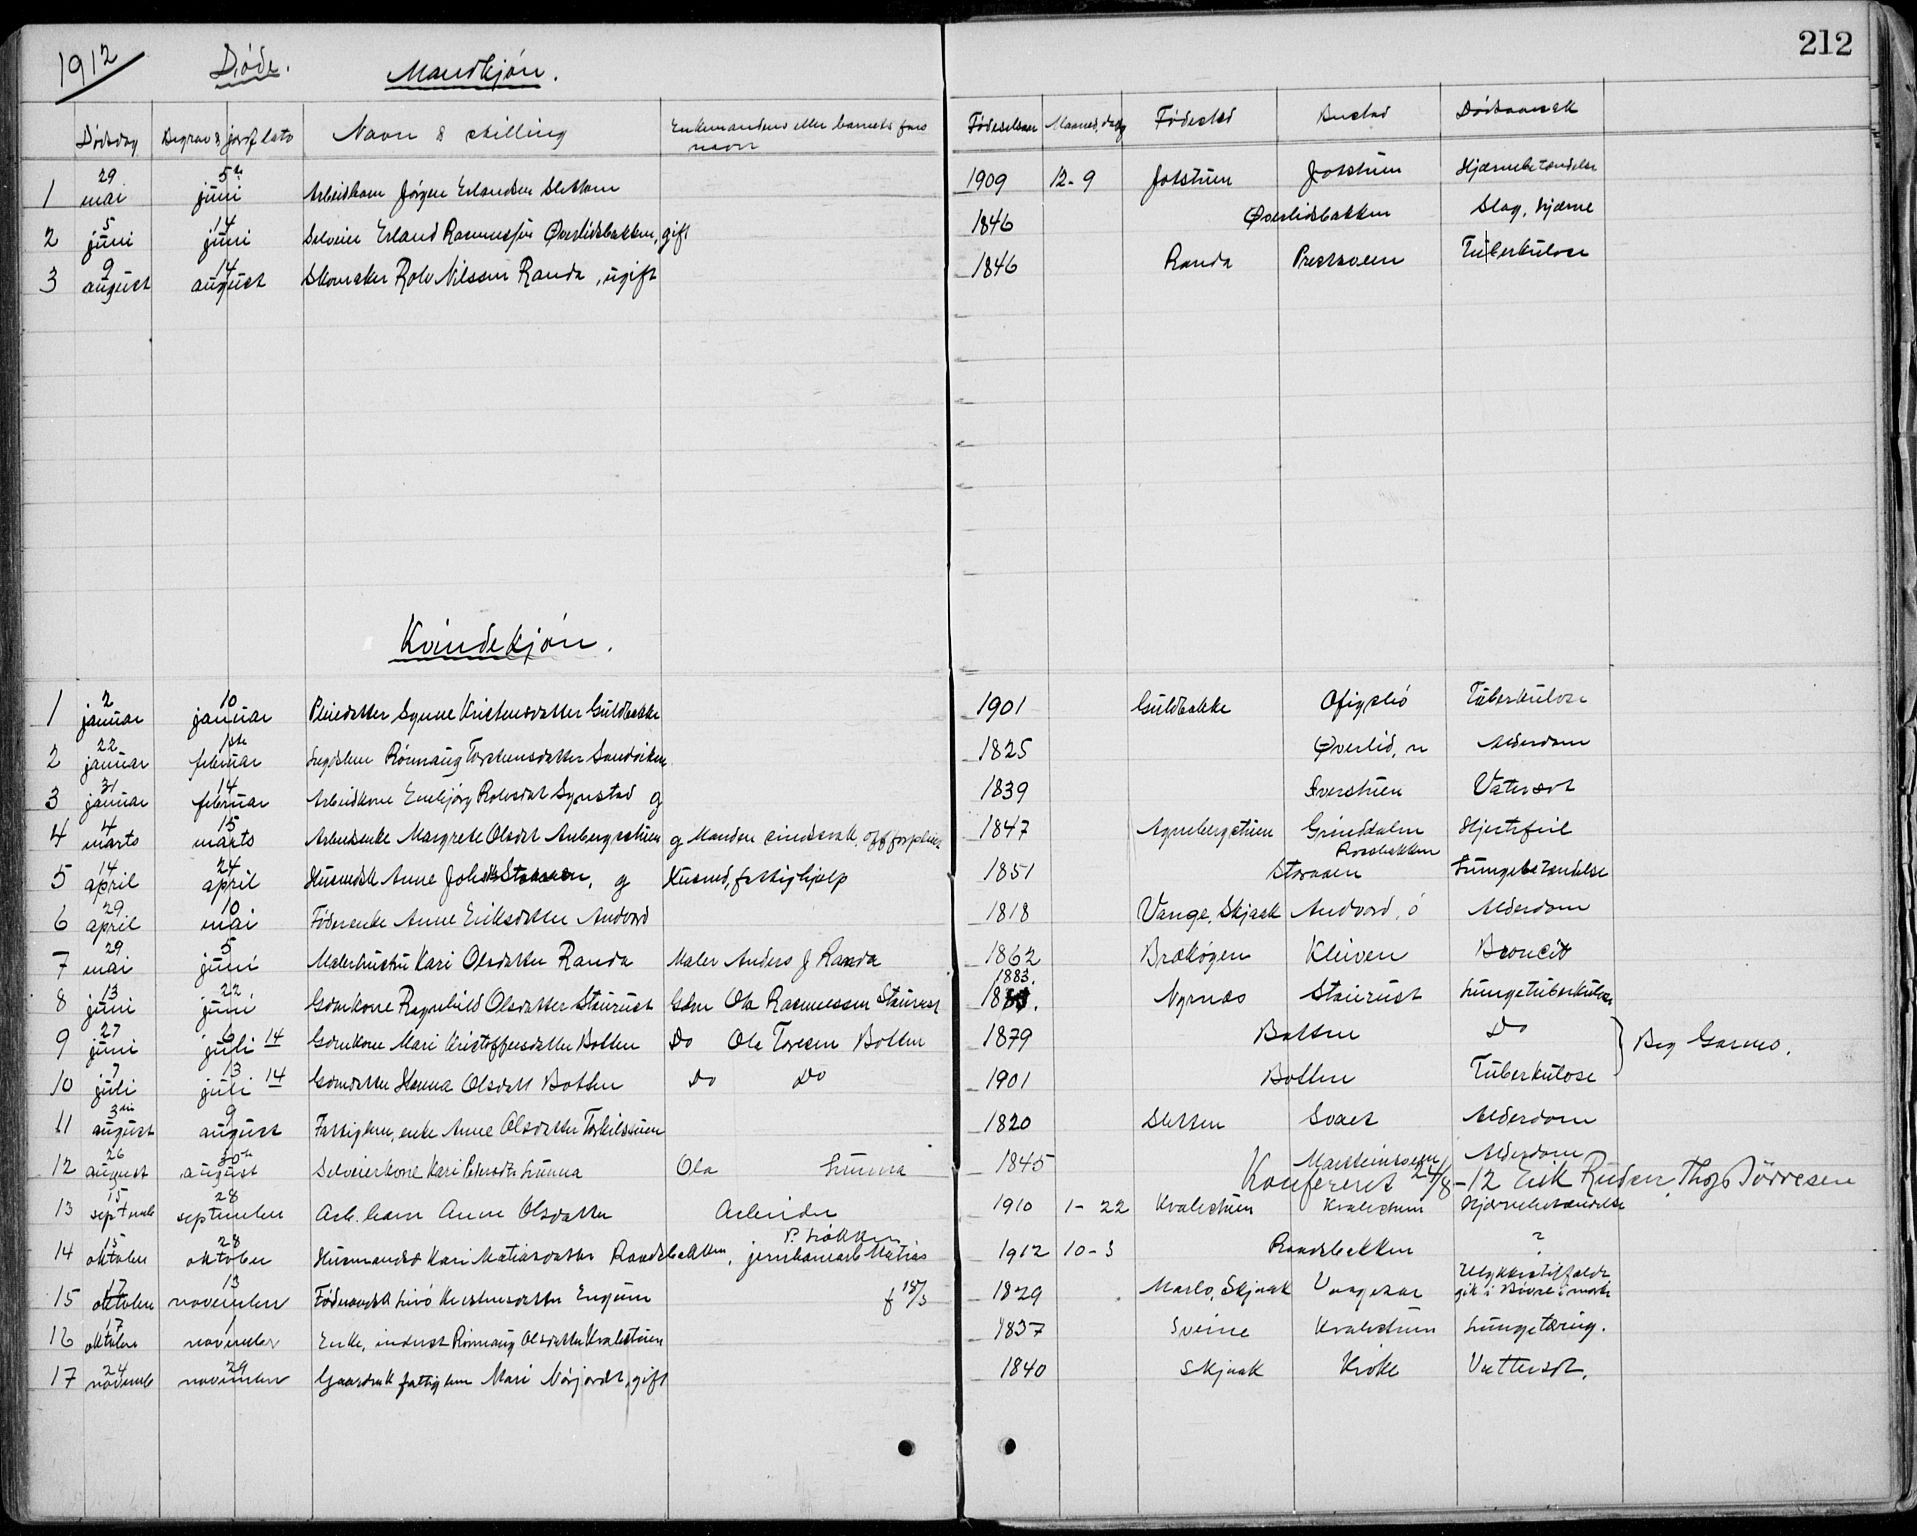 1912 Døde. Mandkjøn. 212
Dødsdag Begrav & jordf dato Navn & stilling Enkemandens eller barnets fars navn Fødselsaar Maaned, dag Fødested Bustad Dødsaarsak
1 29 mai 5te juni Arbeidbarn Jørgen Erlandsen Slettom 1909 12-9 Jotstuen Jotstuen Hjærnebetændelse
2 5 juni 14 juni Selveier Erland Rasmussen Øverlidsbakken, gift 1846 Øverlidsbakken Slag, hjærne
3 9 august 14 august Skomaker Rolv Nilssen Randa, ugift 1846 Randa Prestsveen Tuberkulose
Kvindekjøn.
1 2 januar 10 januar Pleiedatter Synne Kristensdatter Guldbakke 1901 Guldbakke Ofigsbø Tuberkulose
2 22 januar 1ste februar Rønnaug Torsteinsdatter Sandviken 1825 Øverlid, n Alderdom
3 31 januar 14 februar Arbeidkone Embjørg Rolvsdat Synstad g 1839 Iverstuen Vatersot
4 4 marts 15 marts Arbeidsenke Margrete Olsdat Anbergstuen g Manden sindssvak, off forpleiet 1847 Agnebergstuen Grinddalen Rossbakken Hjertefeil
5 14 april 24 april Husmdsk Anne Johdt Storaaen, g Husmd, fattighjælp 1851 Storaaen Lungebetændelse
6 29 april 10 mai Føderenke Anne Eriksdatter Andvord 1818 Vange, Skjaak Andvord, ø Alderdom
7 29 mai 5 juni Malerhustru Kari Olsdatter Randa Maler Anders J Randa 1862 Brækøgen Kleiven Broncit
8 13 juni 22 juni Gdmkone Ragnhild Olsdatter Staurust Gdm Ola Rasmussen Staurust 1883. Nyrnæs Staurust Lungetuberkulose
9 27 juni 6 juli 14 Gdmkone Mari Kristoffersdatter Botten Do Ola Toresen Botten 1879 Botten Do } Beg Garmo.
10 7 juli 13 juli 14 Gdmdatter Hanna Olsdatt Botten Do Do 1901 Botten Tuberkulose
11 3die august 9 august Fattiglem, enke Anne Olsdatter Torkilstuen 1820 Sletten Svaet Alderdom
12 26 august 30te august Selveierkone Kari Pedersdtr Lunna Ola Lunna 1845 Marsteinsveen Alderdom
Konfereret 24/8-12 Eirik Ruden, Thos Tørresen
13 15 septemb 28 september Arb. barn Anne Olsdatter Arbeider 1910 1-22 Kvalestuen Kvalestuen Hjærnebetændelse
14 15 oktober 28 oktober Husmandsd Kari Matiasdatter Randsbakken, P. Løkken jernbanearb Matias 1912 10-3 Randsbakken ?
15 17 oktober 13 november Føderaadsk Livø Kristensdatter Engum f 15/3 1829 Marlo, Skjaak Vaagesar Ulykkestilfælde gik i Bøvre i mørke
16 17 oktober 1 november Enke, inderst Rønnaug Olsdatter Kvalestuen 1837 Sveine Kvalestuen Lungetæring.
17 24 novemb 29 november Gaardsk fattiglem Mari Nørjordet, gift 1840 Skjaak Kroke Vattersot.